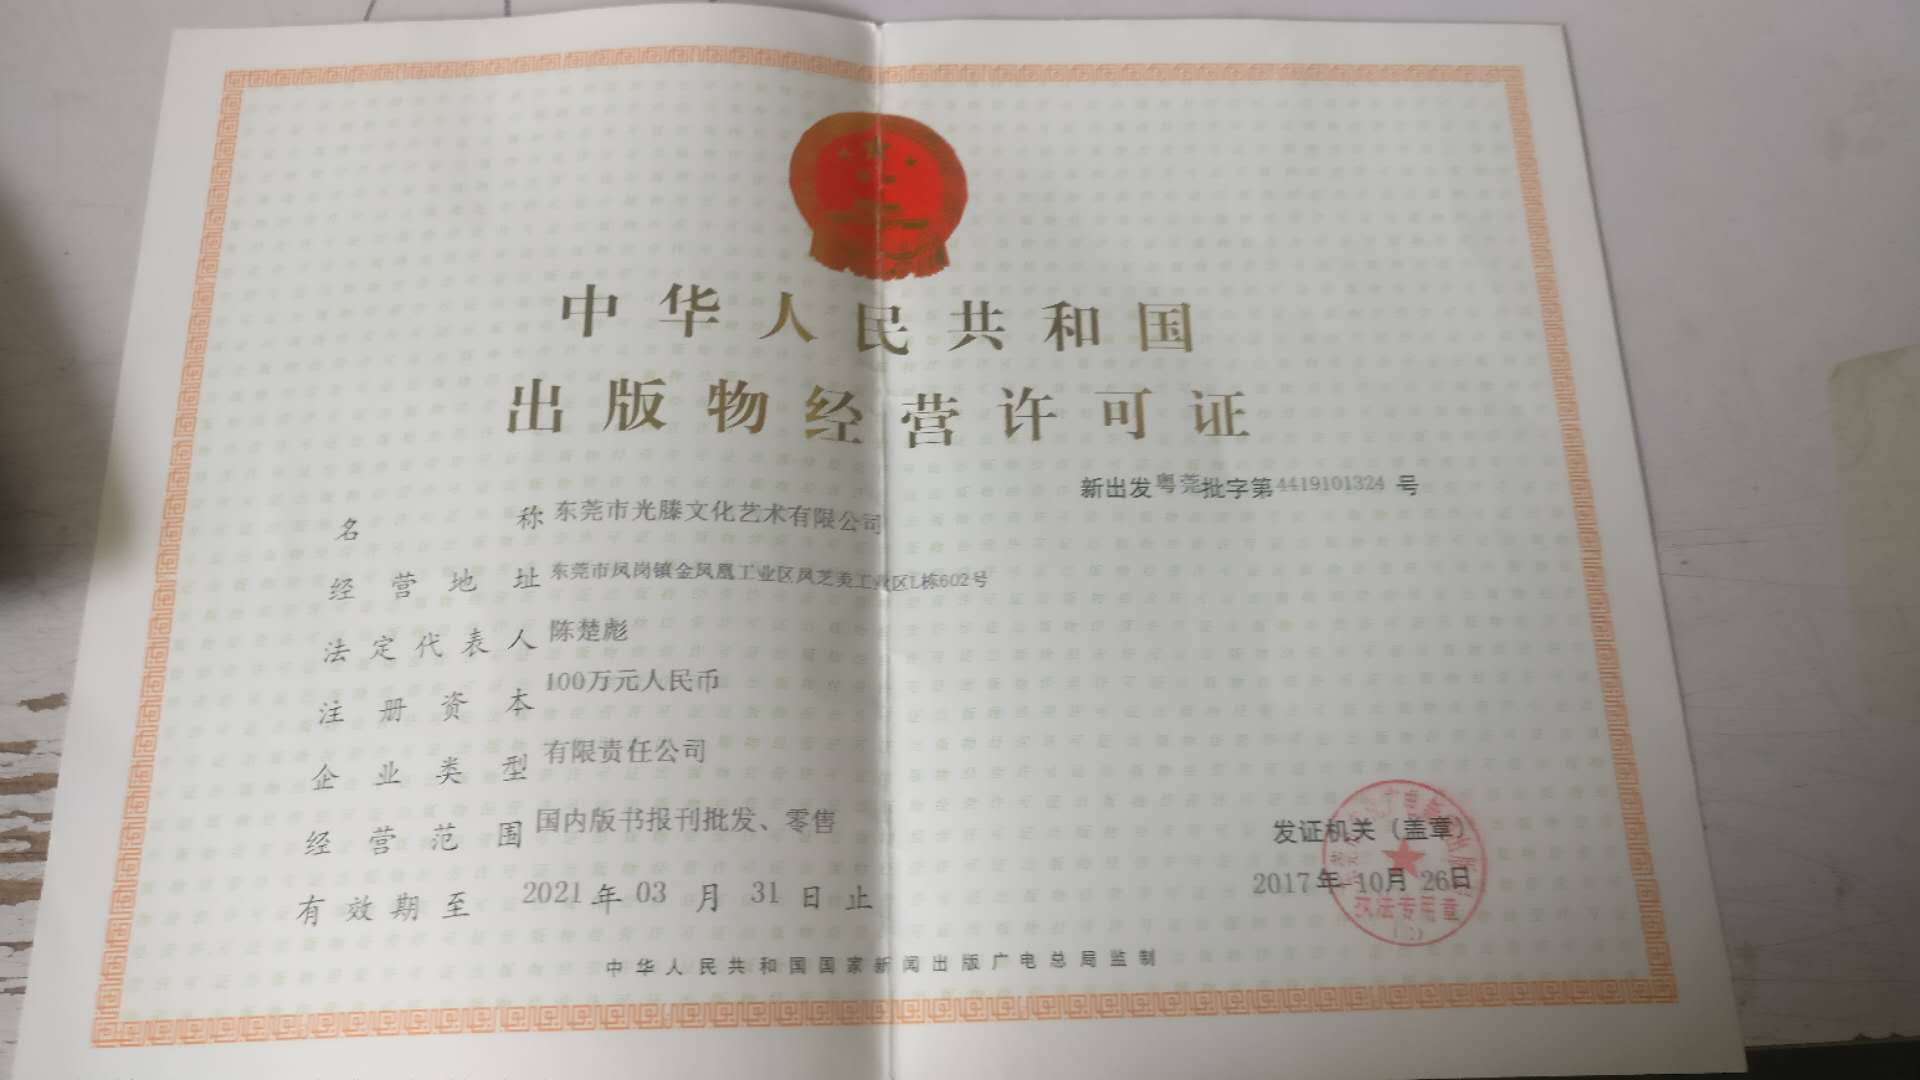 中华人民共和国
出版物经营许可证
新出发粤莞批字第4419101324 号
名称 东莞市光滕文化艺术有限公司
经营地址 东莞市凤岗镇金凤凰工业区凤芝美工业区L栋602号
法定代表人 陈楚彪
注册资本 100万元人民币
企业类型 有限责任公司
经营范围 国内版书报刊批发、零售
有效期至 2021 年 03 月 31 日止
发证机关（盖章）
2017年 10月 26日
执法专用章
中华人民共和国国家新闻出版广电总局监制